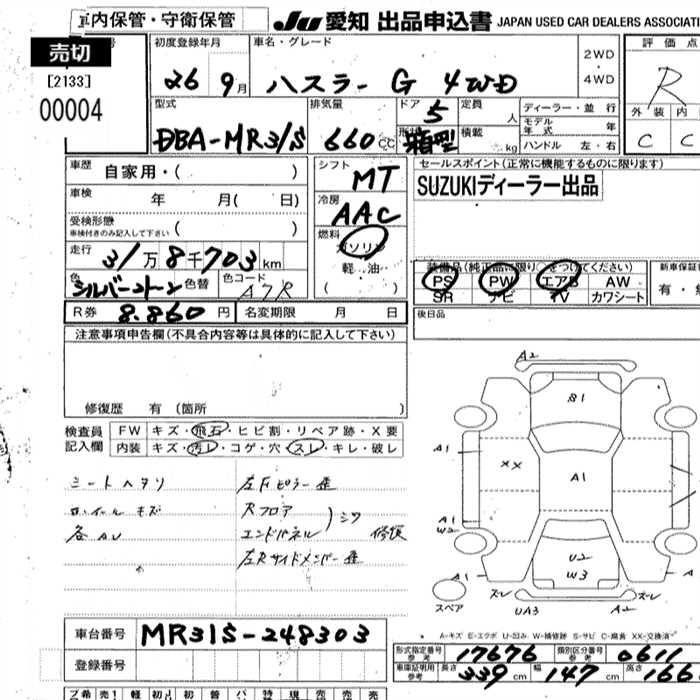 車内保管・守衛保管 JU 愛知 出品申込書 JAPAN USED CAR DEALERS ASSOCIATI
売切 号
[2133]
00004
初度登録年月 車名・グレード 2WD・4WD 評価点
26 9月 ハスラー G 4WD R
型式 排気量 ドア 定員 ディーラー・並行 外装 内装
DBA-MR31S 660cc 5 人 モデル年式 年 C C
形状 箱型 積載 kg ハンドル 左・右
車歴 自家用・( ) シフト MT セールスポイント(正常に機能するものに限ります)
車検 年 月( 日) 冷房 AAC SUZUKIディーラー出品
受検形態 ( )
車検付きのみ記入して下さい
燃料 ガソリン
走行 31万8千703km 軽油
装備品(純正品に限り○をつけてください) 新車保証
色 シルバー2トーン 色替 色コード A7R ( ) PS PW エアB AW 有・
SR ナビ TV カワシート
R券 8.860円 名変期限 月 日 後日品
注意事項申告欄(不具合内容等は具体的に記入して下さい)
修復歴 有 (箇所 )
検査員記入欄 FW キズ・飛石・ヒビ割・リペア跡・X要
内装 キズ・汚レ・コゲ・穴・スレ・キレ・破レ
シートヘタリ 左Fピラー歪
ホイールキズ Rフロア
各AU エンドパネル シワ 修復
左Rサイドメンバー歪
A2
B1
A1 XX A1
A1
W2
U2
W3
A1 スレ スレ A
スペア UA3 A2
A-キズ E-エクボ U-凹み W-補修跡 S-サビ C-腐食 XX-交換済
車台番号 MR31S-248303
登録番号
形式指定番号 参考 17676 類別区分番号 参考 0611
車庫証明用 参考 長さ 339cm 幅 147cm 高さ 166